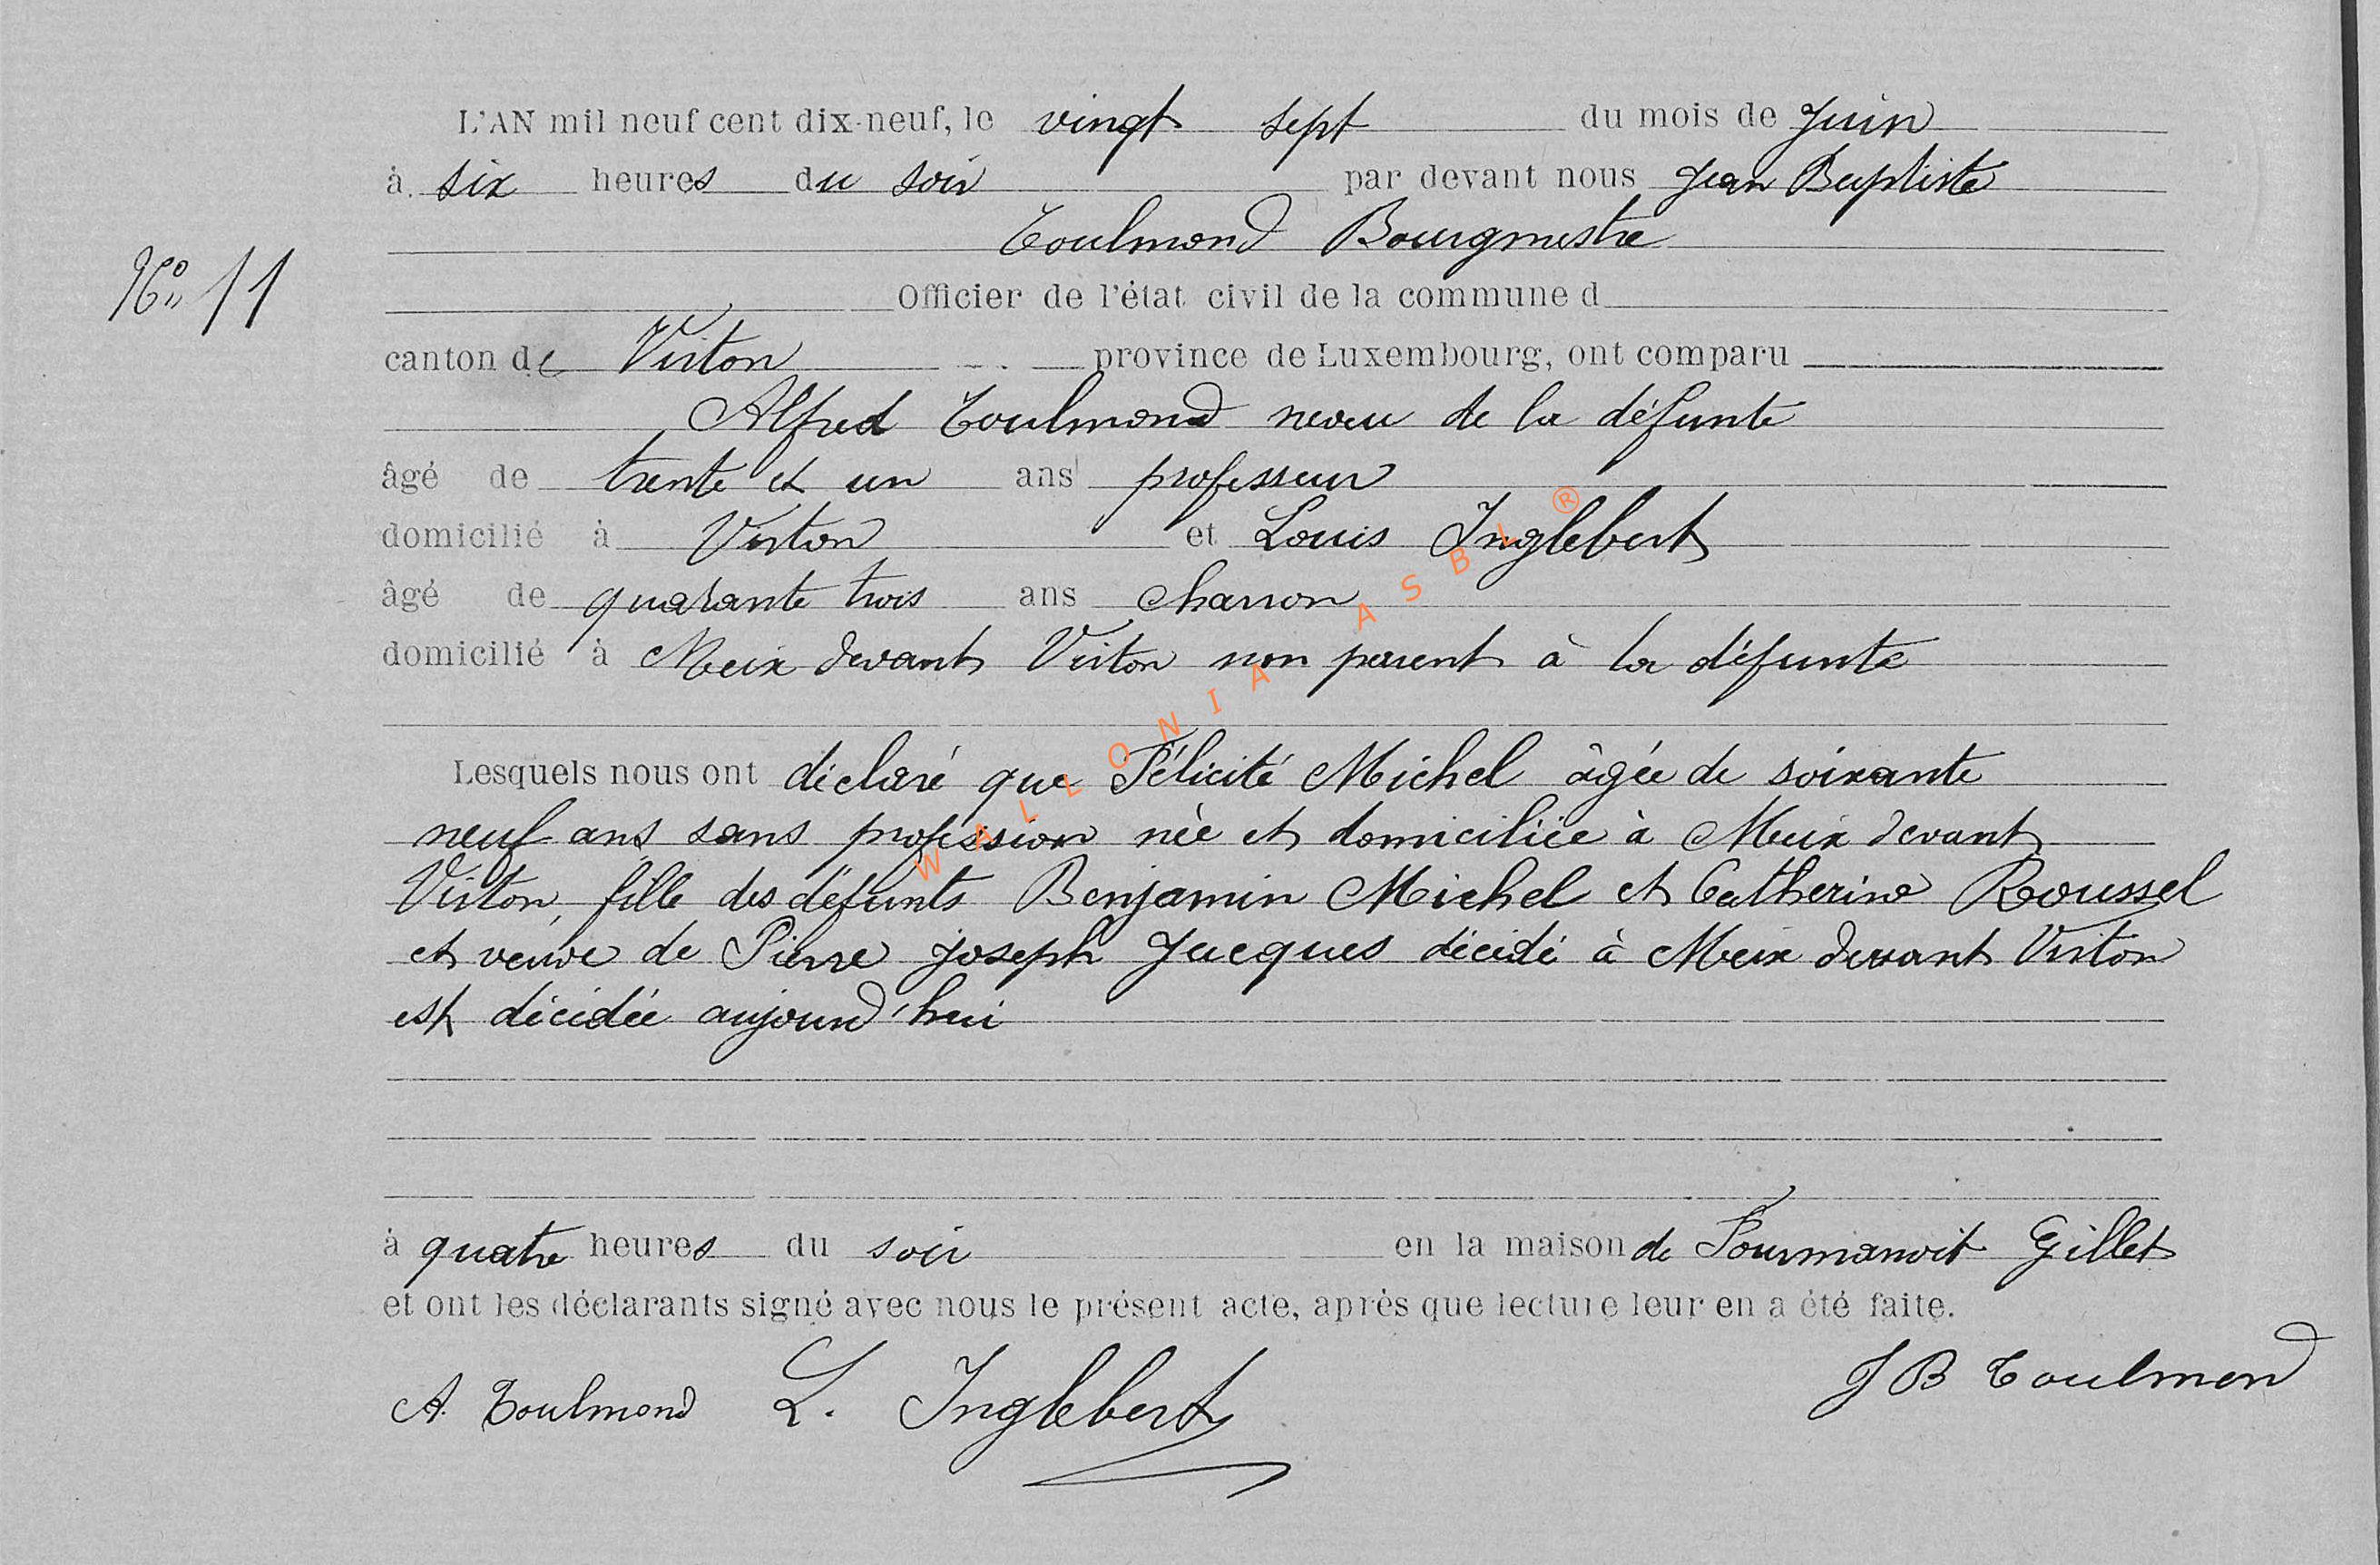 L'AN mil neuf cent dix-neuf, le vingt sept du mois de Juin
à six heures du soir par devant nous Jean Baptiste
Toulmond Bourgmestre
N° 11
Officier de l'état civil de la commune d
canton de Virton province de Luxembourg, ont comparu
Alfred Toulmond neveu de la défunte
âgé de trente et un ans professeur
domicilié à Virton et Louis Inglebert
âgé de quarante trois ans charron
domicilié à Meix devant Virton non parent à la défunte
Lesquels nous ont déclaré que Félicité Michel âgée de soixante
neuf ans sans profession née et domiciliée à Meix devant
Virton, fille des défunts Benjamin Michel et Catherine Roussel
et veuve de Pierre Joseph Jacques décédé à Meix devant Virton
est décédée aujourd'hui
à quatre heures du soir en la maison de Gillet
et ont les déclarants signé avec nous le présent acte, après que lecture leur en a été faite.
A. Toulmond L. Inglebert JB Toulmond
WALLONIA ASBL ®